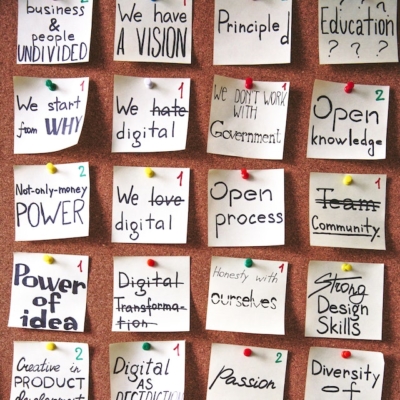 2
business
&
people
UNDIVIDED
We have
A VISION
Principled
Education
? ? ?
1
We start
from WHY
1
We hate
digital
1
We DON'T WORK
WITH
Government
2
Open
knowledge
2
Not-only-money
POWER
1
We love
digital
1
Open
process
1
Team
Community.
1
Power
of
idea
1
Digital
Transforma-
tion
1
Honesty with
ourselves
Strong
Design
Skills
2
Creative in
PRODUCT
development
1
Digital
AS
2
Passion
2
Diversity
of